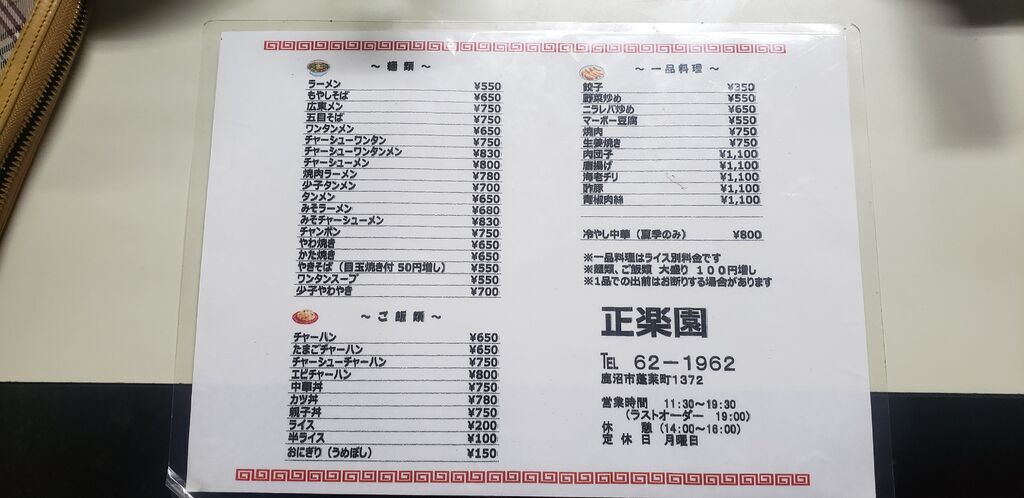 ～ 麺 類 ～
ラーメン ¥550
もやしそば ¥650
広東メン ¥750
五目そば ¥750
ワンタンメン ¥650
チャーシューワンタン ¥750
チャーシューワンタンメン ¥830
チャーシューメン ¥800
焼肉ラーメン ¥780
少子タンメン ¥700
タンメン ¥650
みそラーメン ¥680
みそチャーシューメン ¥830
チャンポン ¥750
やわ焼き ¥650
かた焼き ¥650
やきそば（目玉焼き付 50円増し） ¥550
ワンタンスープ ¥550
少子やわやき ¥700
～ ご 飯 類 ～
チャーハン ¥650
たまごチャーハン ¥650
チャーシューチャーハン ¥750
エビチャーハン ¥800
中華丼 ¥750
カツ丼 ¥780
親子丼 ¥750
ライス ¥200
半ライス ¥100
おにぎり（うめぼし） ¥150
～ 一品料理 ～
餃子 ¥350
野菜炒め ¥550
ニラレバ炒め ¥650
マーボー豆腐 ¥550
焼肉 ¥750
生姜焼き ¥750
肉団子 ¥1,100
唐揚げ ¥1,100
海老チリ ¥1,100
酢豚 ¥1,100
青椒肉絲 ¥1,100
冷やし中華（夏季のみ） ¥800
※一品料理はライス別料金です
※麺類、ご飯類 大盛り 100円増し
※1品での出前はお断りする場合があります
正楽園
TEL 62－1962
鹿沼市蓬莱町1372
営業時間 11:30～19:30
（ラストオーダー 19:00）
休 憩 (14:00～16:00)
定 休 日 月曜日